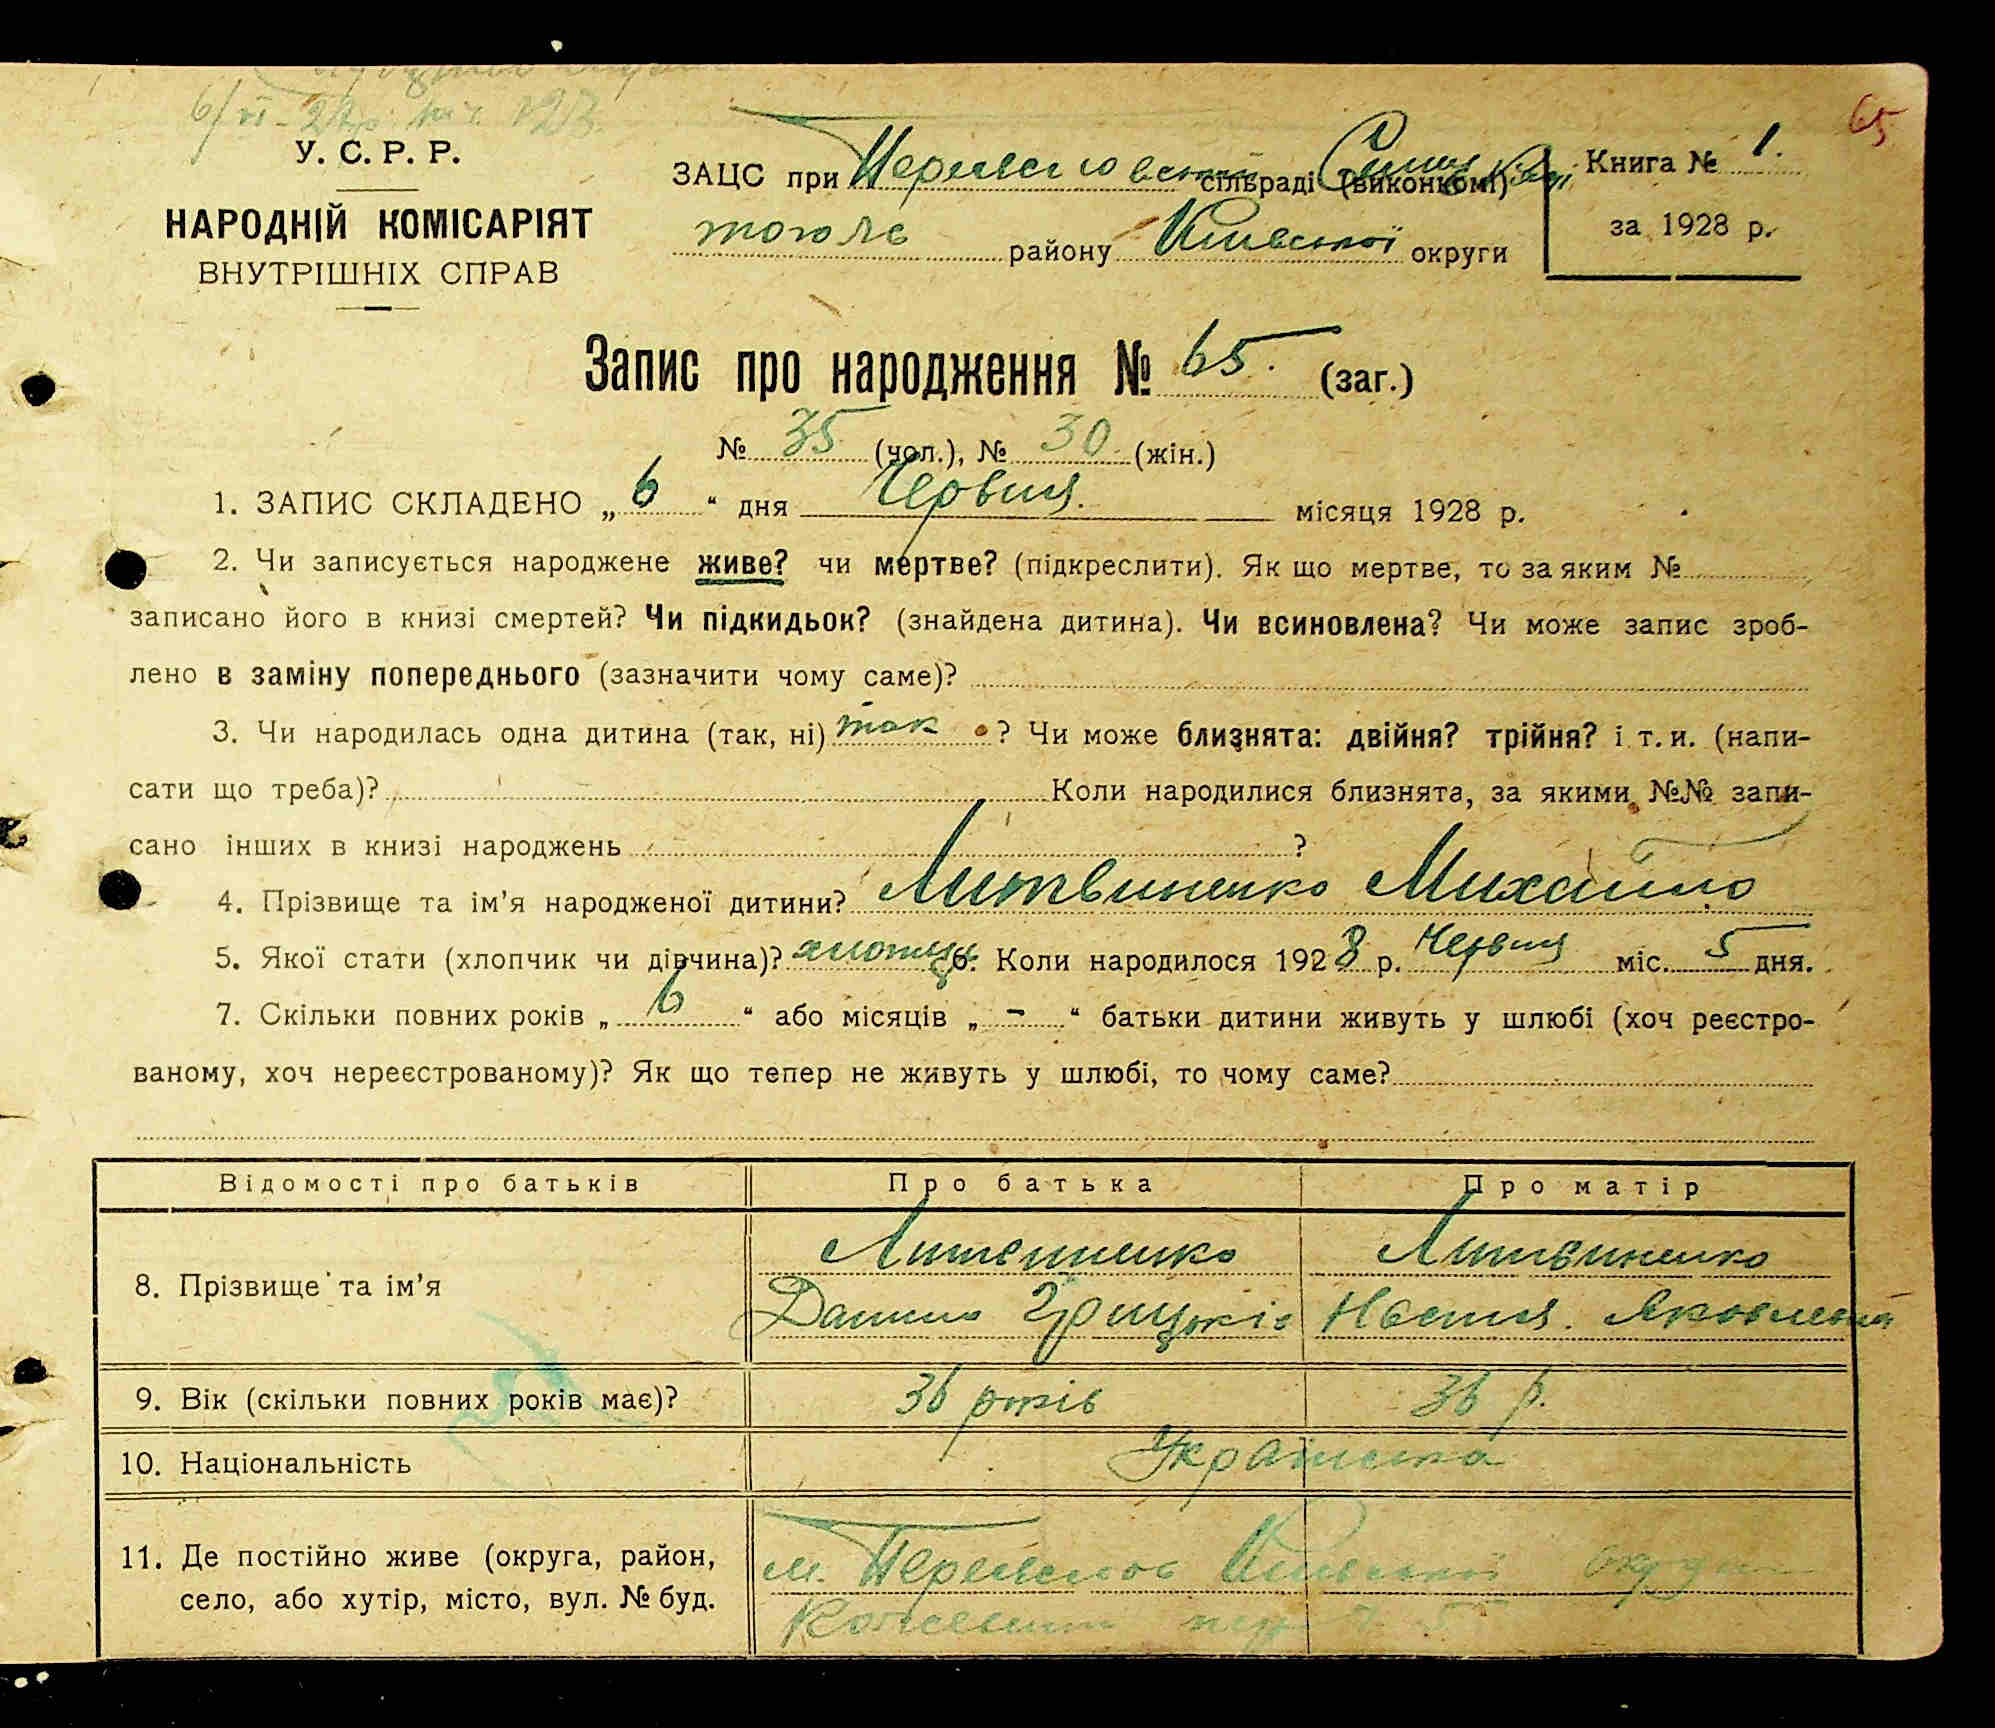 65
У. С. Р. Р.
НАРОДНІЙ КОМІСАРІЯТ
ВНУТРІШНІХ СПРАВ
ЗАЦС при сільраді (виконкомі)
району Київської округи
Книга № 1.
за 1928 р.
Запис про народження № 65. (заг.)
№ 35 (чол.), № 30 (жін.)
1. ЗАПИС СКЛАДЕНО „ 6 “ дня Червня. місяця 1928 р.
2. Чи записується народжене живе? чи мертве? (підкреслити). Як що мертве, то за яким №
записано його в книзі смертей? Чи підкидьок? (знайдена дитина). Чи всиновлена? Чи може запис зроб-
лено в заміну попереднього (зазначити чому саме)?
3. Чи народилась одна дитина (так, ні) так ? Чи може близнята: двійня? трійня? і т. и. (напи-
сати що треба)? Коли народилися близнята, за якими №№ запи-
сано інших в книзі народжень ?
4. Прізвище та ім’я народженої дитини? Литвиненко Михайло
5. Якої стати (хлопчик чи дівчина)? хлопець 6. Коли народилося 1928 р. Червня міс. 5 дня.
7. Скільки повних років „ 6 “ або місяців „ - “ батьки дитини живуть у шлюбі (хоч реєстро-
ваному, хоч нереєстрованому)? Як що тепер не живуть у шлюбі, то чому саме?
Відомості про батьків Про батька Про матір
8. Прізвище та ім’я
Литвиненко
Данило Грицьків
Литвиненко
Настя. Яковлевна
9. Вік (скільки повних років має)? 36 років 36 р.
10. Національність Українська
11. Де постійно живе (округа, район,
село, або хутір, місто, вул. № буд.
м. Переяслов Київської округи